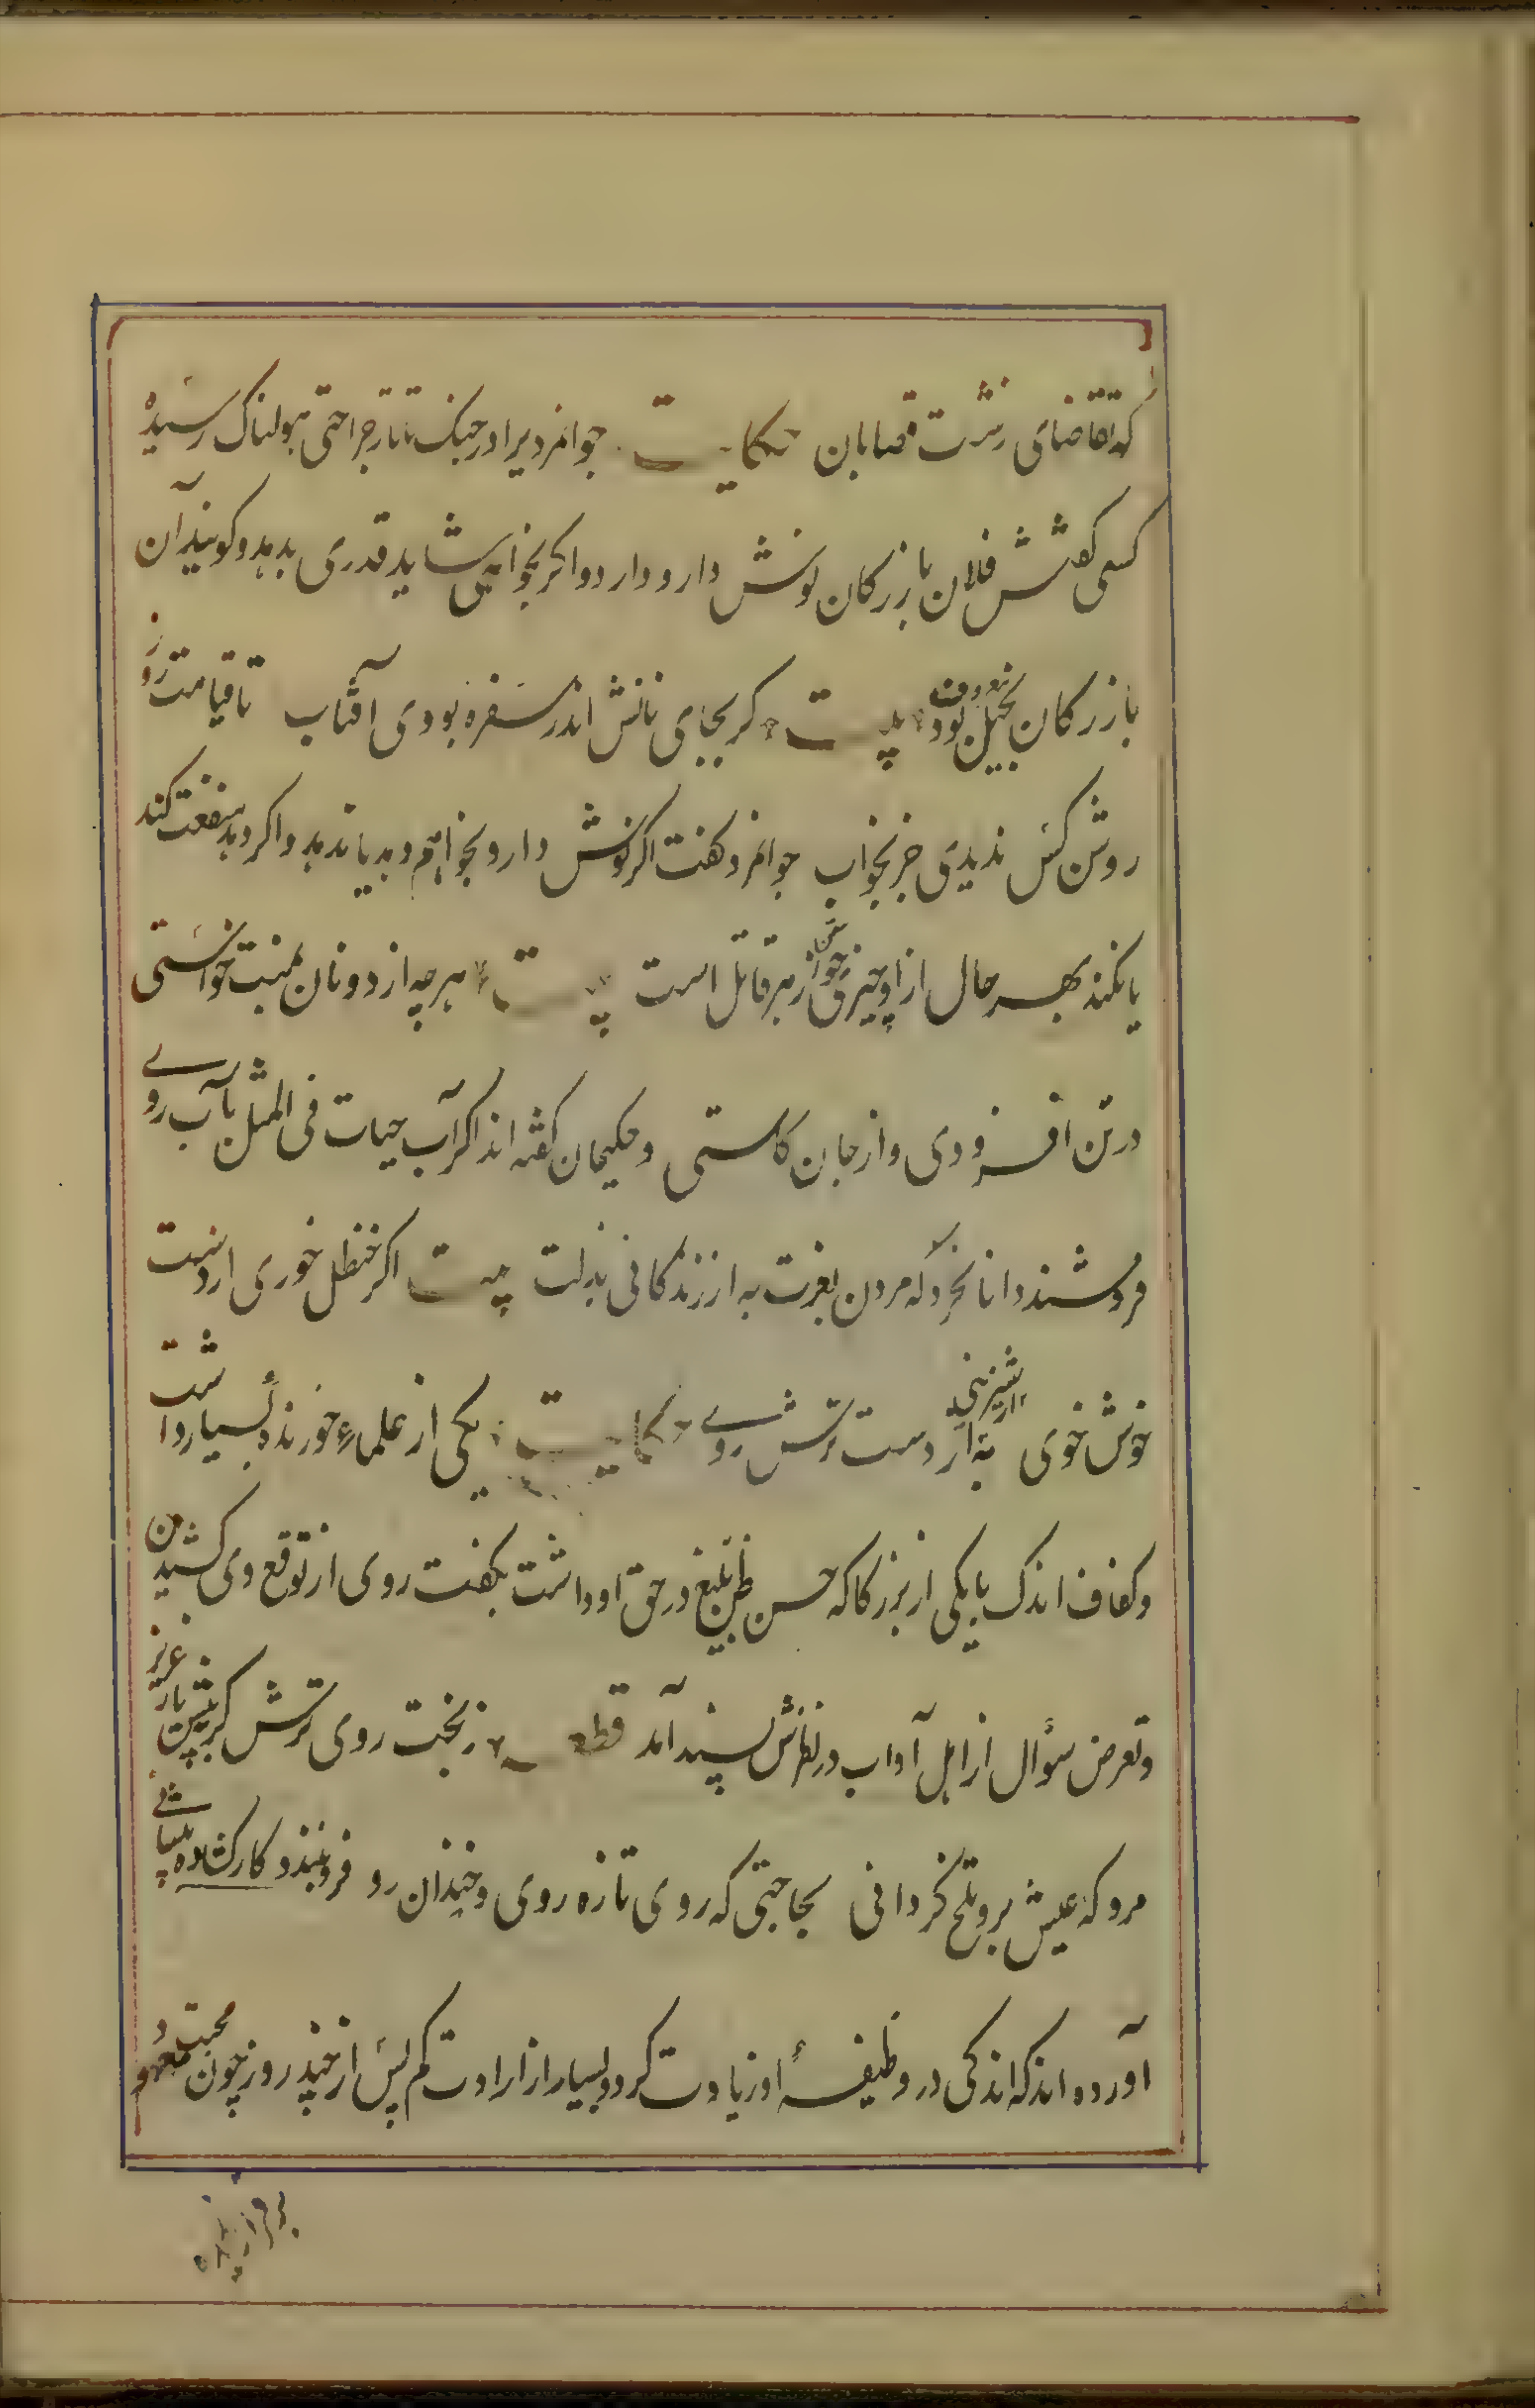 که تقاضای زشت قصابان حکایت جوانمردیرا در جنک تاتار جراحتی هولناک رسیده
کسی کفتش فلان بازرکان نوش دارو دارد و اکر بخواهی شاید قدری بدهد و کویند آن
بازرکان ببخیلی معروف بود بیت کر بجای نانش اندر سفره بودی آفتاب تا قیامت روز
روشن کس ندیدی جز بخواب جوانمرد کفت اکر نوش دارو بخواهم دهد یا ندهد و اکر دهد منفعت کند
یا نکند بهر حال از او چیزی خواستن زهر قاتل است بیت هر چه از دونان بمنت خواستی
در تن افزودی و از جان کاستی و حکیمان کفته اند اکر آب حیات فی المثل بآب روی
فروشند دانا نخرد که مردن بعزت به از زندکانی بذلت بیت اکر حنظل خوری از دست
خوش خوی به از شیرینی از دست ترش روی حکایت یکی از علماء خورنده بسیار داشت
و کفاف اندک با یکی از بزرکان که حسن ظن بلیغ در حق او داشت بکفت روی از توقع وی کشیدن
و تعرض سؤال از اهل آداب در نظرش پسند آمد قطعه ز بخت روی ترش کرده پیش یار عزیز
مرو که عیش برو تلخ کردانی بحاجتی که روی تازه روی و خندان رو فرو نبندد کار کشاده پیشانی
آورده اند که اندکی در وظیفهٔ او زیادت کرد و بسیار از ارادت کم پس از چند روز چون محبت معهود
برقرار